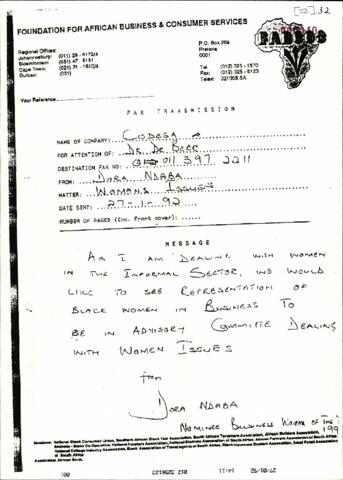 [22] 32
FOUNDATION FOR AFRICAN BUSINESS & CONSUMER SERVICES
FABCOS
Regional Offices:
Johannesburg: (011) 29 - 8172/4
Bloemfontein: (051) 47 - 8151
Cape Town: (021) 71 - 1810/4
Durban: (031)
P.O. Box 269
Pretoria
0001
Tel: (012) 325 - 1570
Fax: (012) 325 - 8123
Telex: 321905 SA
Your Reference
FAX TRANSMISSION
NAME OF COMPANY: CODESA
FOR ATTENTION OF: DR DE BEER
DESTINATION FAX NO: 011 397 2211
FROM: DORA NDABA
MATTER: WOMANS ISSUES
DATE SENT: 27-1-92
NUMBER OF PAGES (Inc. front cover): ......
MESSAGE
AS I AM DEALING WITH WOMEN
IN THE INFORMAL SECTOR, WE WOULD
LIKE TO SEE REPRESENTATION OF
BLACK WOMEN IN BUSINESS TO
BE IN ADVISORY COMMITTE DEALING
WITH WOMEN ISSUES
from
DORA NDABA
NOMINEE BUSINESS WOMAN OF THE
199
Members: National Black Consumer Union, Southern African Black Taxi Association, South African Taverners Association, African Builders Association,